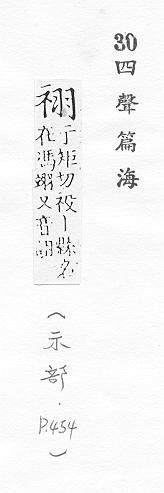 30四聲篇海
祤
于矩切祋丨縣名
在馮翊又音詡
(示部．P.454)